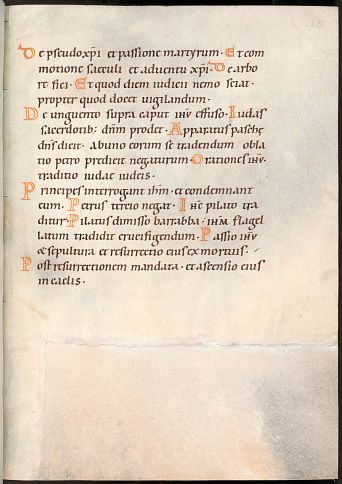 De pseudoxp̄i et passione martyrum. Et com
motione sacculi et aduentu xp̄i. De arbo
re fici. Et quod diem iudicii nemo sciat.
propter quod docet uigilandum.
De unguento supra caput ihu effuso. Iudas
sacerdotib; dn̄m prodet. Apparatus pasche
dn̄s dicit. ab uno eorum se tradendum. obla
tio petro predicit negaturum. Orationes ihu.
traditio iudae iudeis.
Principes interrogant ihm. et condemnant
eum. Petrus tercio negat. Inc̄ pilato tra
ditur. Pilatus dimisso barrabba. ihm flagel
latum tradidit crucifigendum. Passio ihu
& sepultura et resurrectio eius ex mortuis.
Post resurrectionem mandata. et ascensio eius
in caelis.